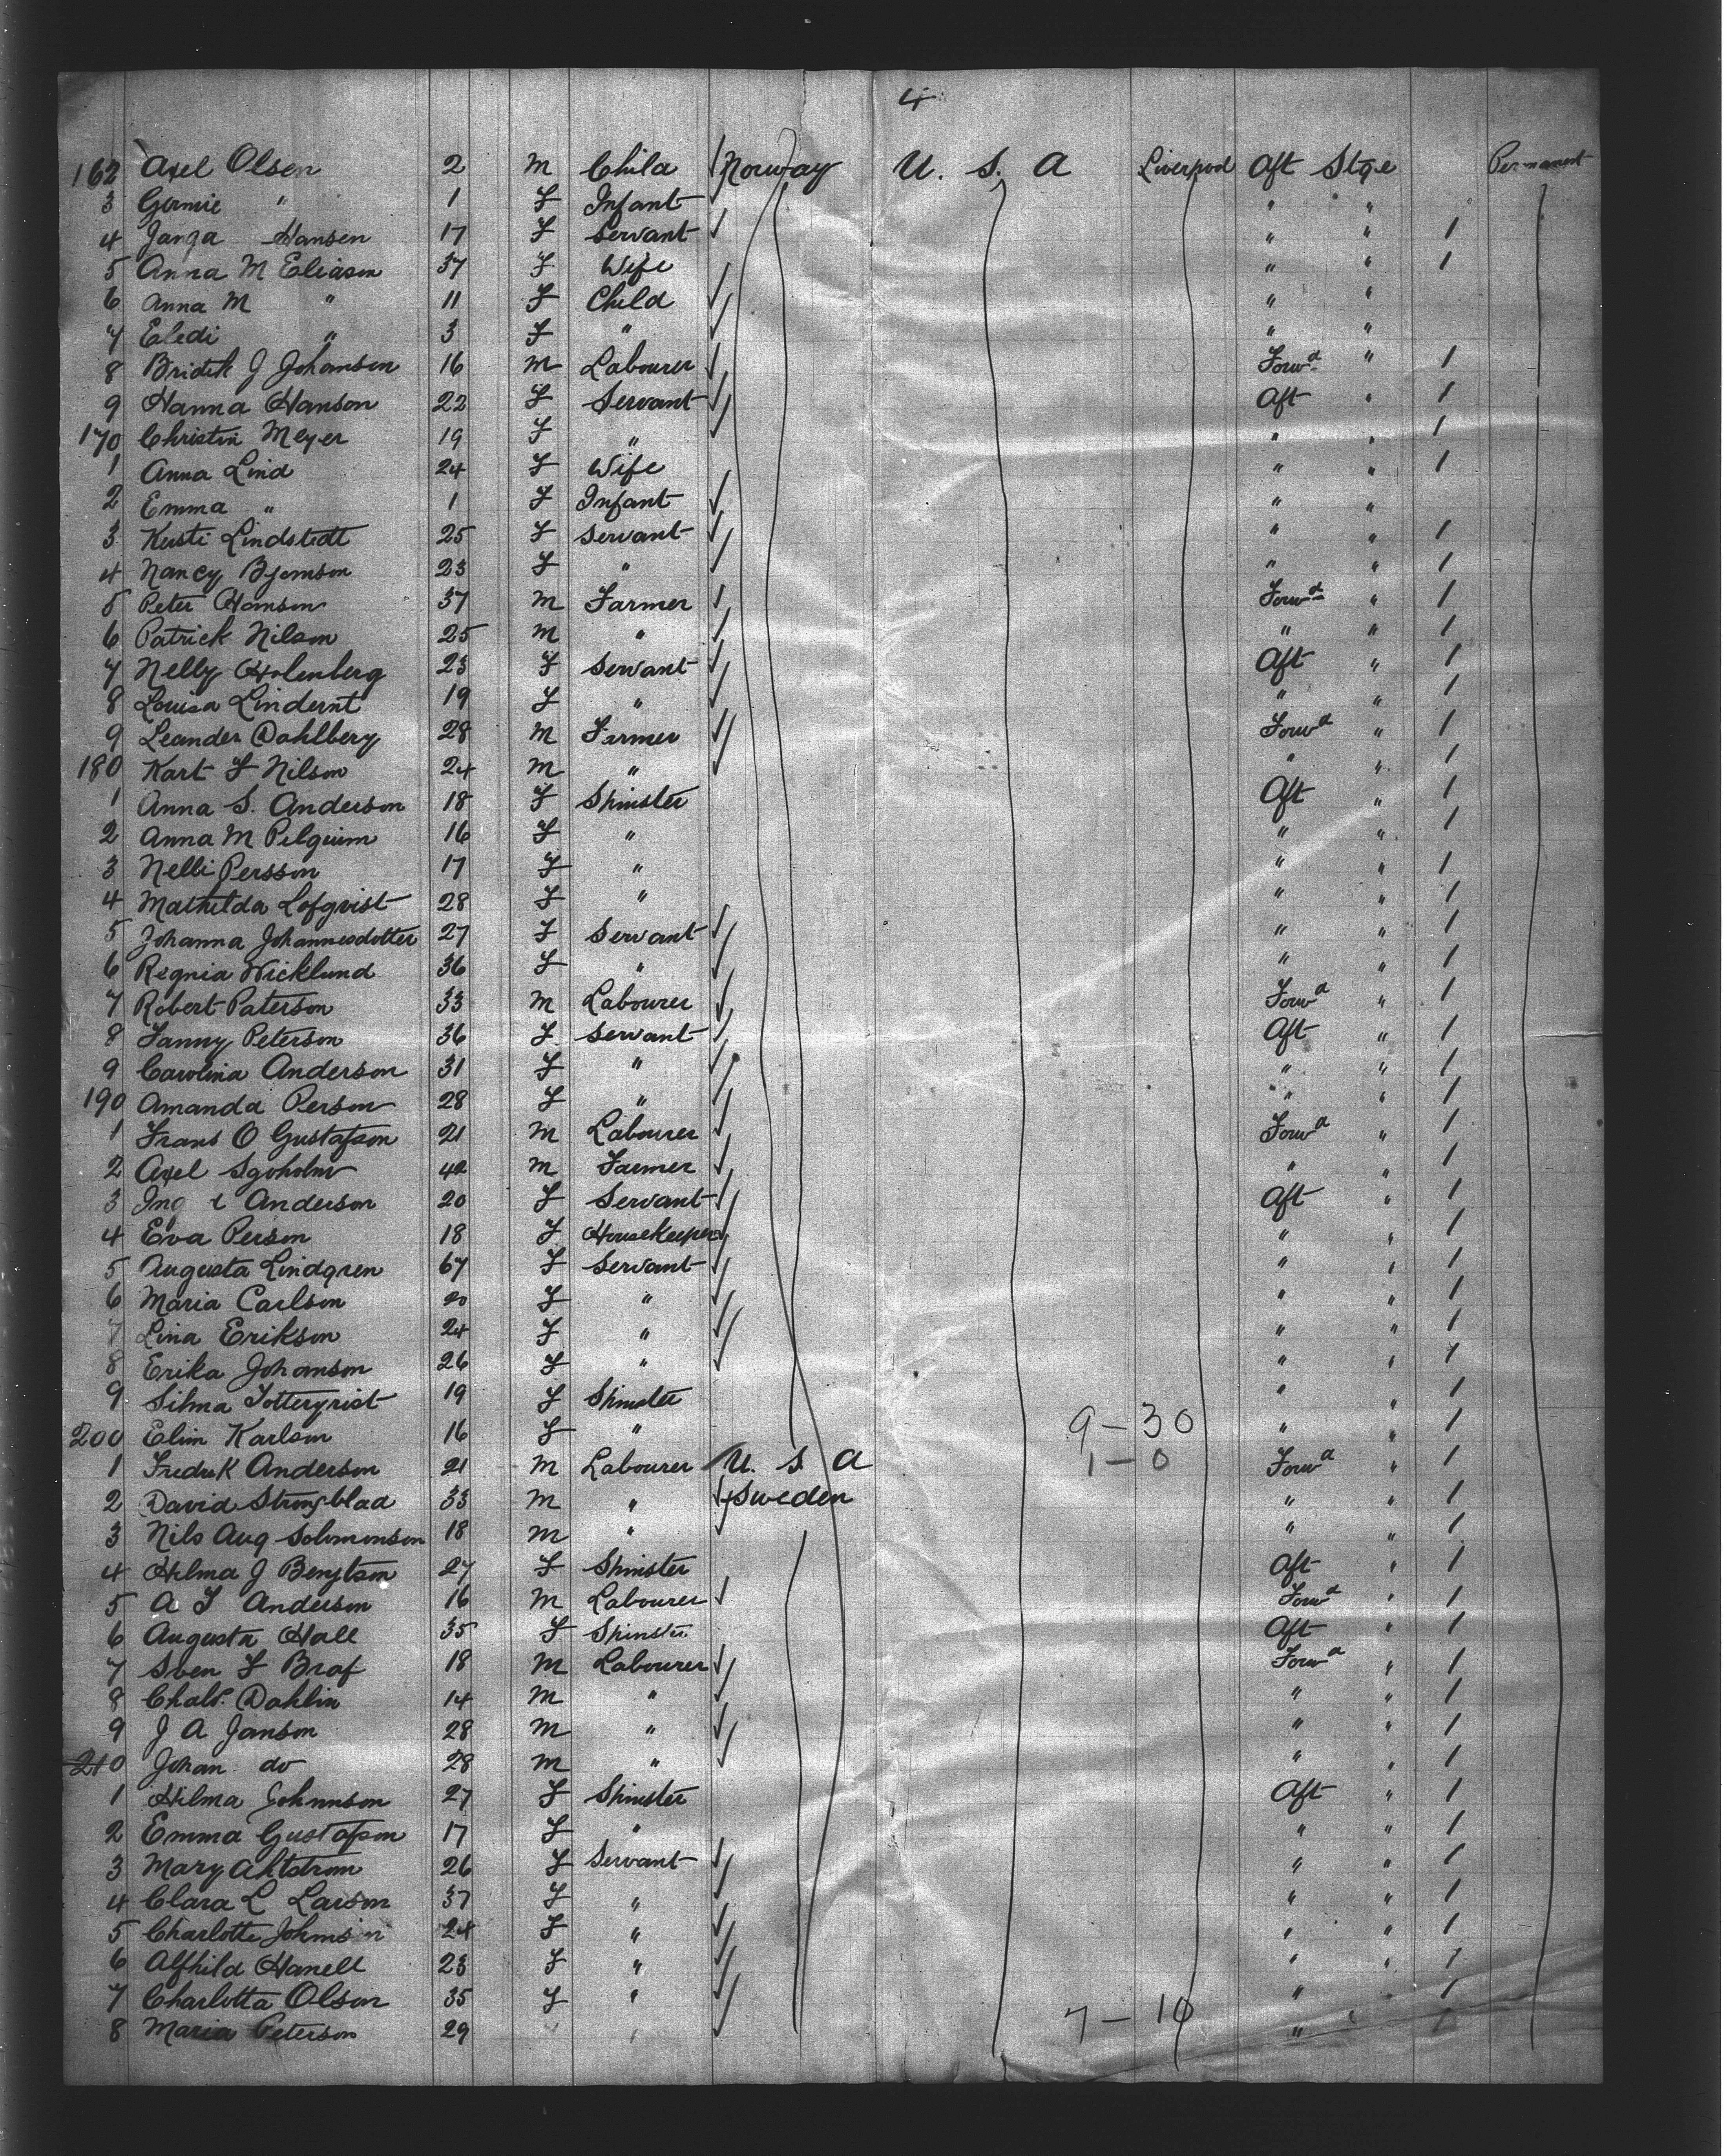 4
162 Axel Olsen 2 M Child Norway U. S. A Liverpool Aft Stge Permanent
3 " 1 F Infant " "
4 Janga Hansen 17 F Servant " " 1
5 Anna M Eliason 37 F Wife " " 1
6 Anna M " 11 F Child " "
7 Eledi " 3 F " " "
8 Bridth J Johanson 16 M Labourer Forwd " 1
9 Hanna Hanson 22 F Servant Aft " 1
170 Christin Meyer 19 F " " " 1
1 Anna Lind 24 F Wife " " 1
2 Emma " 1 F Infant " "
3 Kusti Lindstedt 25 F Servant " " 1
4 Nancy Bjornson 23 F " " " 1
5 Peter Hanson 37 M Farmer Forwd " 1
6 Patrick Nilson 25 M " " " 1
7 Nelly Holenberg 23 F Servant Aft " 1
8 Louisa Lindernt 19 F " " " 1
9 Leander Dahlberg 28 M Farmer Forwd " 1
180 Kart F Nilson 24 M " " " 1
1 Anna S. Anderson 18 F Spinster Aft " 1
2 Anna M Pilguim 16 F " " " 1
3 Nelli Persson 17 F " " " 1
4 Mathilda Lofqvist 28 F " " " 1
5 Johanna Johannesdotter 27 F Servant " " 1
6 Regnia Wicklund 36 F " " " 1
7 Robert Paterson 33 M Labourer Forwd " 1
8 Fanny Peterson 36 F Servant Aft " 1
9 Carolina Anderson 31 F " " " 1
190 Amanda Person 28 F " " " 1
1 Frans O Gustafson 21 M Labourer Forwd " 1
2 Axel Sgoholm 42 M Farmer " " 1
3 Anderson 20 F Servant Aft " 1
4 Eva Person 18 F Housekeeper " " 1
5 Augusta Lindgren 67 F Servant " " 1
6 Maria Carlson 20 F " " " 1
7 Lina Erikson 24 F " " " 1
8 Erika Johanson 26 F " " " 1
9 Silma 19 F Spinster " " 1
200 Elin Karlson 16 F " 9-30 " " 1
1 Fredrik Anderson 21 M Labourer U. S A 1-0 Forwd " 1
2 David Strongblad 33 M " Sweden " " 1
3 Nils Aug Solomonson 18 M " " " 1
4 Hilma J Bengtson 27 F Spinster Aft " 1
5 A F Anderson 16 M Labourer Forwd " 1
6 Augusta Hall 35 F Spinster Aft " 1
7 Sven F Braf 18 M Labourer Forwd " 1
8 Chals. Dahlin 14 M " " " 1
9 J A Janson 28 M " " " 1
210 Johan do 28 M " " " 1
1 Hilma Johnnson 27 F Spinster Aft " 1
2 Emma Gustafson 17 F " " " 1
3 Mary Ahlstrom 26 F Servant " " 1
4 Clara L Larson 37 F " " " 1
5 Charlotte Johnson 24 F " " " 1
6 Alfhild Hanell 23 F " " " 1
7 Charlotta Olson 35 F " " " 1
8 Maria Peterson 29 7-10 "